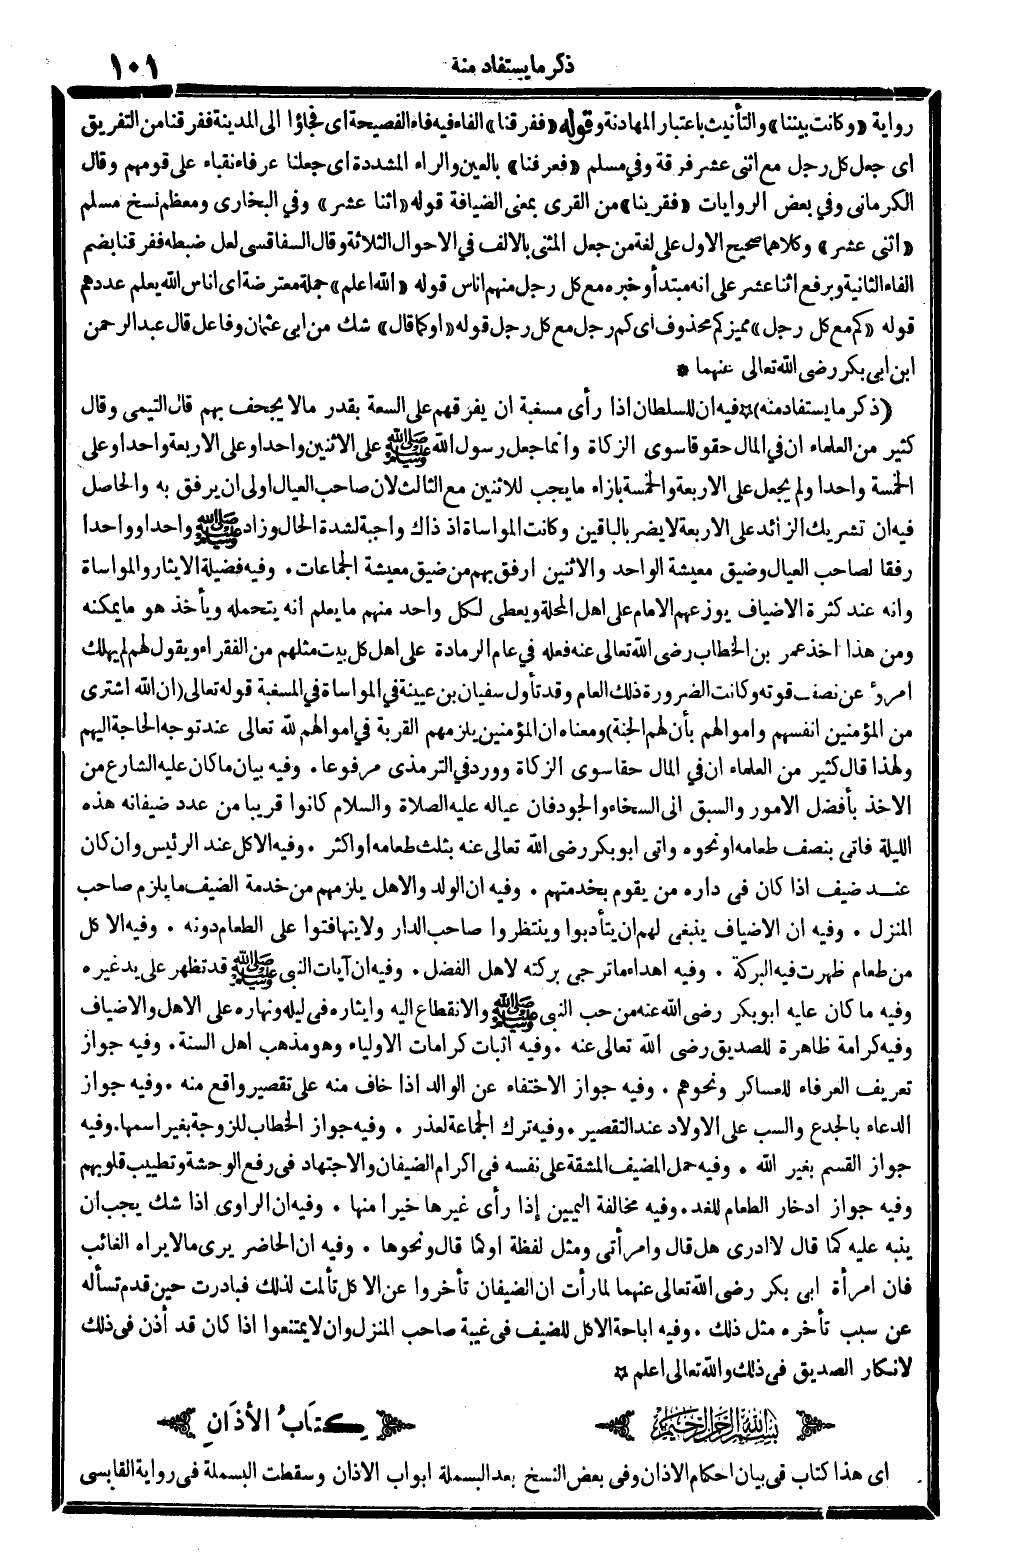 ذكر ما يستفاد منه
١٠١
رواية «وكانت بيننا» والتأنيث باعتبار المهادنة وقوله «ففرقنا» الفاء فيه فاء الفصيحة اى فجاؤا الى المدينة ففرقنا من التفريق
اى جعل كل رجل مع اثنى عشر فرقة وفي مسلم «فعرفنا» بالعين والراء المشددة اى جعلنا عرفاء نقباء على قومهم وقال
الكرمانى وفي بعض الروايات «فقرينا» من القرى بمعنى الضيافة قوله «اثنا عشر» وفي البخارى ومعظم نسخ مسلم
«اثنى عشر» وكلاهما صحيح الاول على لغة من جعل المثنى بالالف في الاحوال الثلاثة وقال السفاقسى لعل ضبطه ففرقنا بضم
الفاء الثانية وبرفع اثنا عشر على انه مبتدأ وخبره مع كل رجل منهم اناس قوله «الله اعلم» جملة معترضة اى اناس الله يعلم عددهم
قوله «كم مع كل رجل» مميز كم محذوف اى كم رجل مع كل رجل قوله «او كما قال» شك من ابى عثمان وفاعل قال عبد الرحمن
ابن ابى بكر رضى الله تعالى عنهما *
(ذكر ما يستفاد منه) * فيه ان للسلطان اذا رأى مسغبة ان يفرقهم على السعة بقدر مالا يجحف بهم قال التيمى وقال
كثير من العلماء ان في المال حقوقا سوى الزكاة وانما جعل رسول الله ﷺ على الاثنين واحدا وعلى الاربعة واحدا وعلى
الخمسة واحدا ولم يجعل على الاربعة والخمسة بازاء ما يجب للاثنين مع الثالث لان صاحب العيال اولى ان يرفق به والحاصل
فيه ان تشريك الزائد على الاربعة لا يضر بالباقين وكانت المواساة اذ ذاك واجبة لشدة الحال وزاد ﷺ واحدا وواحدا
رفقا لصاحب العيال وضيق معيشة الواحد والاثنين ارفق بهم من ضيق معيشة الجماعات. وفيه فضيلة الايثار والمواساة
وانه عند كثرة الاضياف يوزعهم الامام على اهل المحلة ويعطى لكل واحد منهم ما يعلم انه يتحمله ويأخذ هو ما يمكنه
ومن هذا اخذ عمر بن الخطاب رضى الله تعالى عنه فعله في عام الرمادة على اهل كل بيت مثلهم من الفقراء ويقول لهم لم يهلك
امرؤ عن نصف قوته وكانت الضرورة ذلك العام وقد تأول سفيان بن عيينة في المواساة في المسغبة قوله تعالى (ان الله اشترى
من المؤمنين انفسهم واموالهم بأن لهم الجنة) ومعناه ان المؤمنين يلزمهم القربة في اموالهم لله تعالى عند توجه الحاجة اليهم
ولهذا قال كثير من العلماء ان في المال حقا سوى الزكاة وورد في الترمذى مرفوعا. وفيه بيان ما كان عليه الشارع من
الاخذ بأفضل الامور والسبق الى السخاء والجود فان عياله عليه الصلاة والسلام كانوا قريبا من عدد ضيفانه هذه
الليلة فاتى بنصف طعامه او نحوه واتى ابو بكر رضى الله تعالى عنه بثلث طعامه او اكثر . وفيه الاكل عند الرئيس وان كان
عنــد ضيف اذا كان فى داره من يقوم بخدمتهم . وفيه ان الولد والاهل يلزمهم من خدمة الضيف ما يلزم صاحب
المنزل . وفيه ان الاضياف ينبغى لهم ان يتأدبوا وينتظروا صاحب الدار ولا يتهافتوا على الطعام دونه . وفيه الاكل
من طعام ظهرت فيه البركة . وفيه اهداء ما ترجى بركته لاهل الفضل . وفيه ان آيات النبى ﷺ قد تظهر على يد غيره
وفيه ما كان عليه ابو بكر رضى الله عنه من حب النبى ﷺ والانقطاع اليه وايثاره فى ليله ونهاره على الاهل والاضياف
وفيه كرامة ظاهرة للصديق رضى الله تعالى عنه . وفيه اثبات كرامات الاولياء وهو مذهب اهل السنة. وفيه جواز
تعريف العرفاء للعساكر ونحوهم . وفيه جواز الاختفاء عن الوالد اذا خاف منه على تقصير واقع منه . وفيه جواز
الدعاء بالجدع والسب على الاولاد عند التقصير . وفيه ترك الجماعة لعذر . وفيه جواز الخطاب للزوجة بغير اسمها. وفيه
جواز القسم بغير الله . وفيه حمل المضيف المشقة على نفسه فى اكرام الضيفان والاجتهاد فى رفع الوحشة وتطييب قلوبهم
وفيه جواز ادخار الطعام للغد. وفيه مخالفة اليمين إذا رأى غيرها خيرا منها . وفيه ان الراوى اذا شك يجب ان
ينبه عليه كما قال لا ادرى هل قال وامرأتى ومثل لفظة او كما قال ونحوها . وفيه ان الحاضر يرى مالا يراه الغائب
فان امرأة ابى بكر رضى الله تعالى عنهما لما رأت ان الضيفان تأخروا عن الاكل تألمت لذلك فبادرت حين قدم تسأله
عن سبب تأخره مثل ذلك . وفيه اباحة الاكل للضيف فى غيبة صاحب المنزل وان لا يمتنعوا اذا كان قد أذن فى ذلك
لانكار الصديق فى ذلك والله تعالى اعلم *
بسم الله الرحمن الرحيم
كتاب الأذان
اى هذا كتاب فى بيان احكام الاذان وفى بعض النسخ بعد البسملة ابواب الاذان وسقطت البسملة فى رواية القابسى